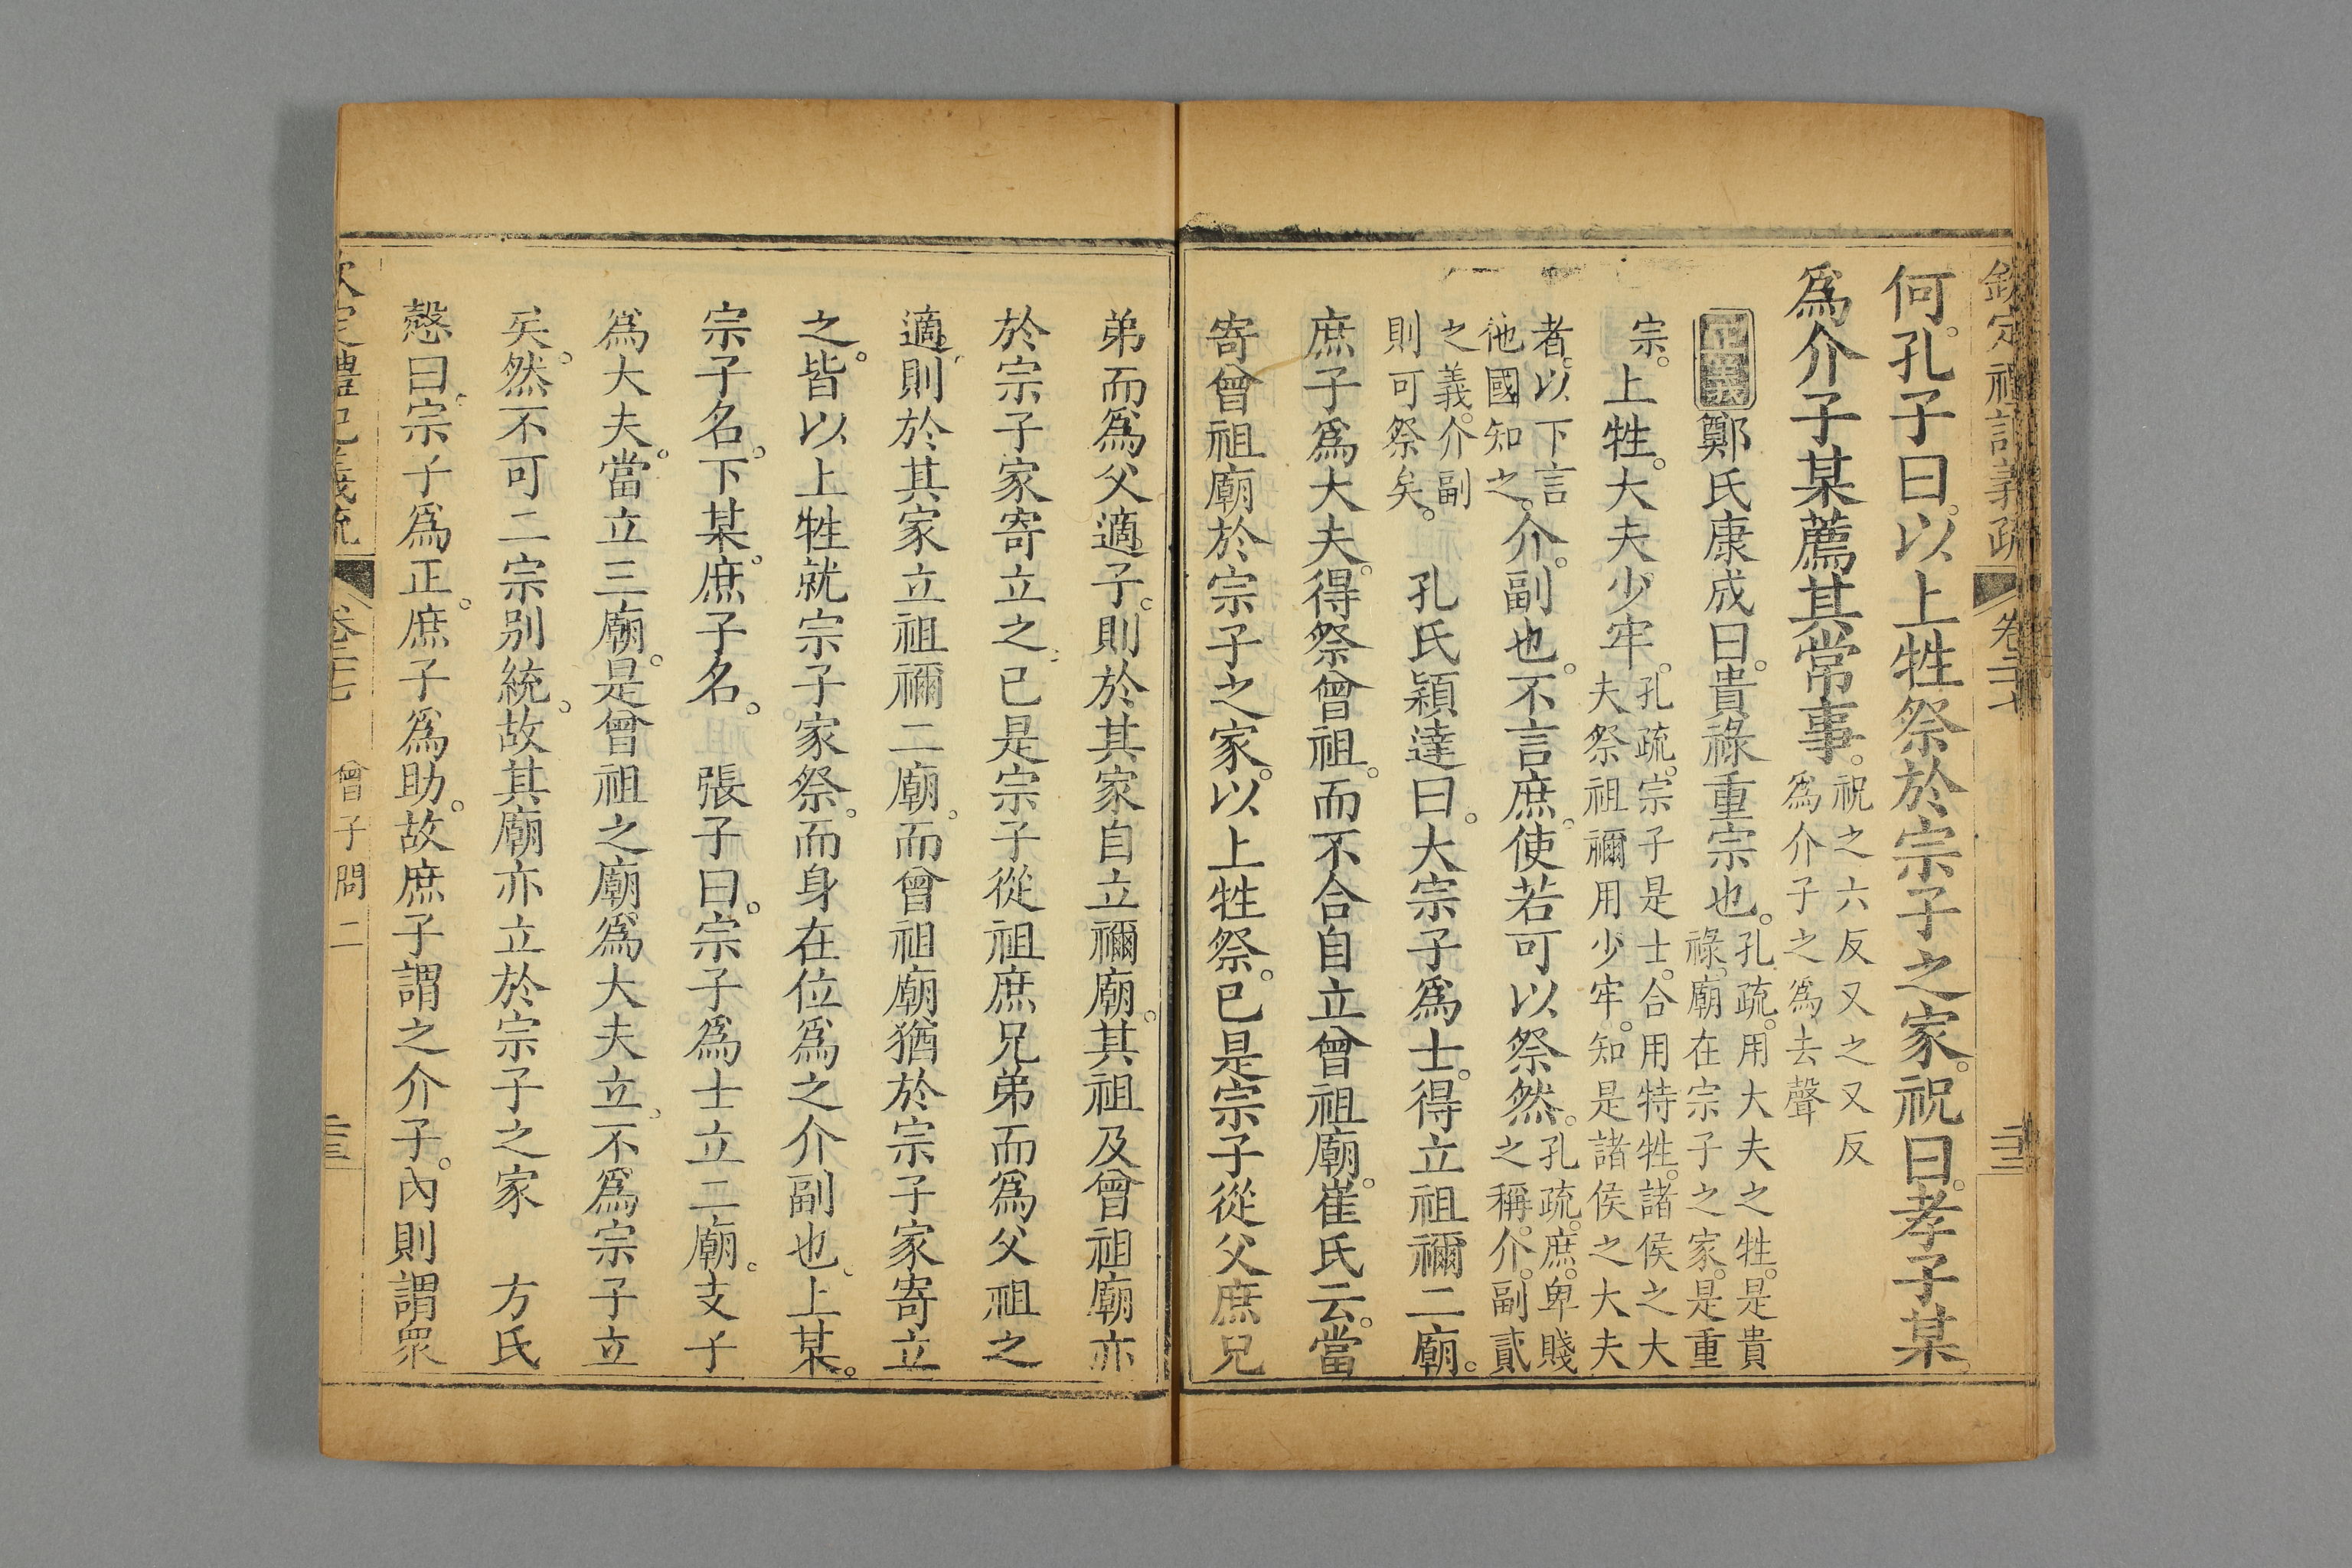 欽定禮記義疏 卷二十七
何孔子曰。以上牲祭於宗子之家。祝曰。孝子某。
爲介子某薦其常事。祝之六反又之又反
爲介子之爲去聲
正義鄭氏康成曰。貴祿重宗也。孔疏。用大夫之牲。是貴
祿。廟在宗子之家。是重
宗。上牲。大夫少牢。孔疏。宗子是士。合用特牲。諸侯之大
夫祭祖禰用少牢。知是諸侯之大夫
者。以下言
他國知之。介。副也。不言庶。使若可以祭然。孔疏。庶。卑賤
之稱。介。副貳
之義。介副
則可祭矣。孔氏穎達曰。大宗子爲士。得立祖禰二廟。
庶子爲大夫。得祭曾祖。而不合自立曾祖廟。崔氏云。當
寄曾祖廟於宗子之家。以上牲祭。已是宗子從父庶兄
弟而爲父適子。則於其家自立禰廟。其祖及曾祖廟亦
於宗子家寄立之。已是宗子從祖庶兄弟而爲父祖之
適。則於其家立祖禰二廟。而曾祖廟猶於宗子家寄立
之。皆以上牲就宗子家祭。而身在位爲之介副也。上某。
宗子名。下某。庶子名。 張子曰。宗子爲士立二廟。支子
爲大夫。當立三廟。是曾祖之廟爲大夫立。不爲宗子立
矣。然不可二宗別統。故其廟亦立於宗子之家 方氏
慤曰。宗子爲正。庶子爲助。故庶子謂之介子。內則謂衆
欽定禮記義疏 卷二十七 曾子問二 二十三